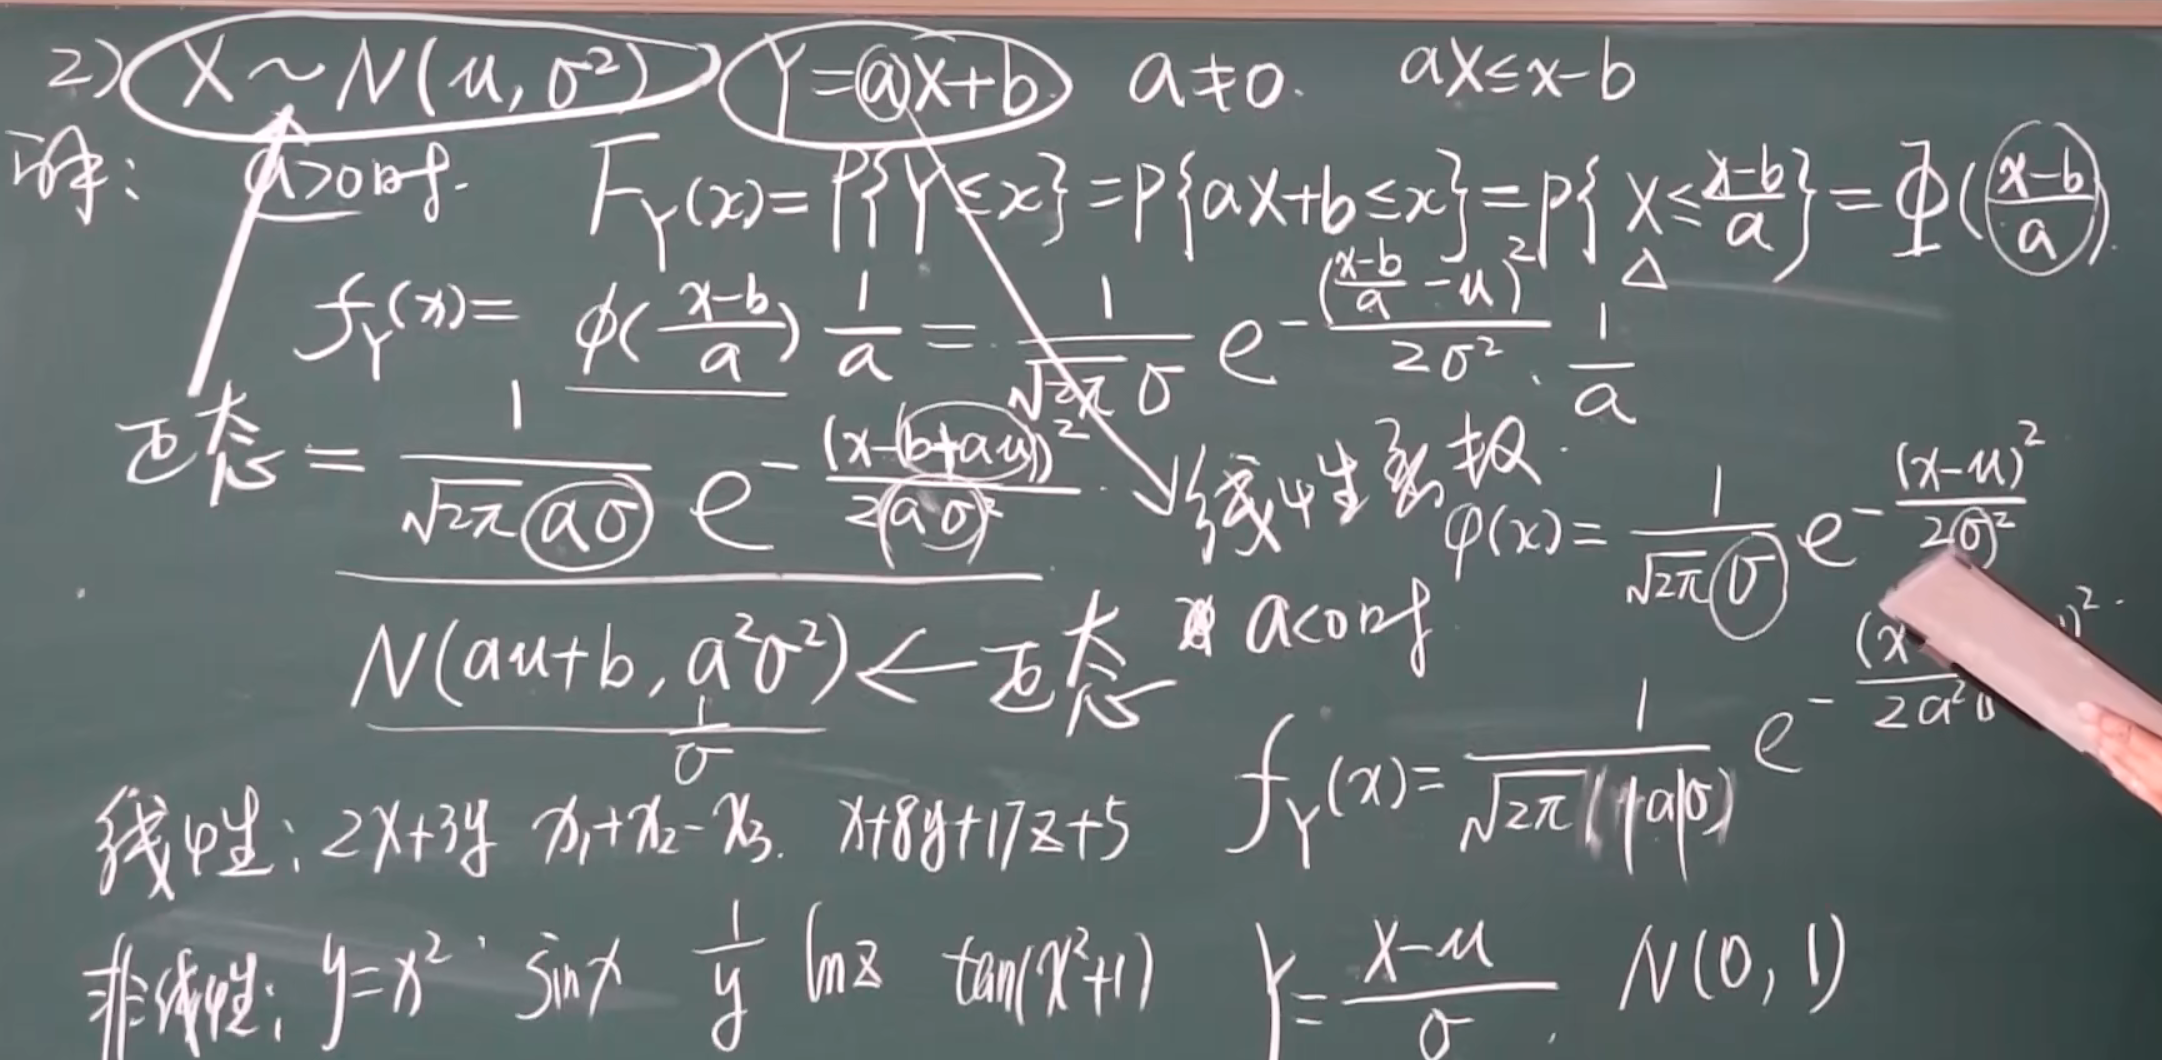 2) X~N(μ,σ²) Y=aX+b a≠0. aX≤x-b
证: a>0时. F_Y(x)=P{Y≤x}=P{aX+b≤x}=P{X≤(x-b)/a}=Φ((x-b)/a).
f_Y(x)=ϕ((x-b)/a) 1/a = 1/(√2π σ) e^-((x-b)/a-μ)²/2σ² · 1/a
正态 = 1/(√2π aσ) e^-(x-(b+aμ))²/2(aσ)²
线性 φ(x)=1/(√2π σ) e^-(x-μ)²/2σ²
N(aμ+b, a²σ²) ← 正态
1/σ
a<0时
f_Y(x)=1/(√2π(|a|σ)) e^-
线性: 2x+3y x₁+x₂-x₃. x+8y+17z+5
非线性: y=x² sinx 1/y lnz tan(x²+1)
Y=(X-μ)/σ. N(0,1)